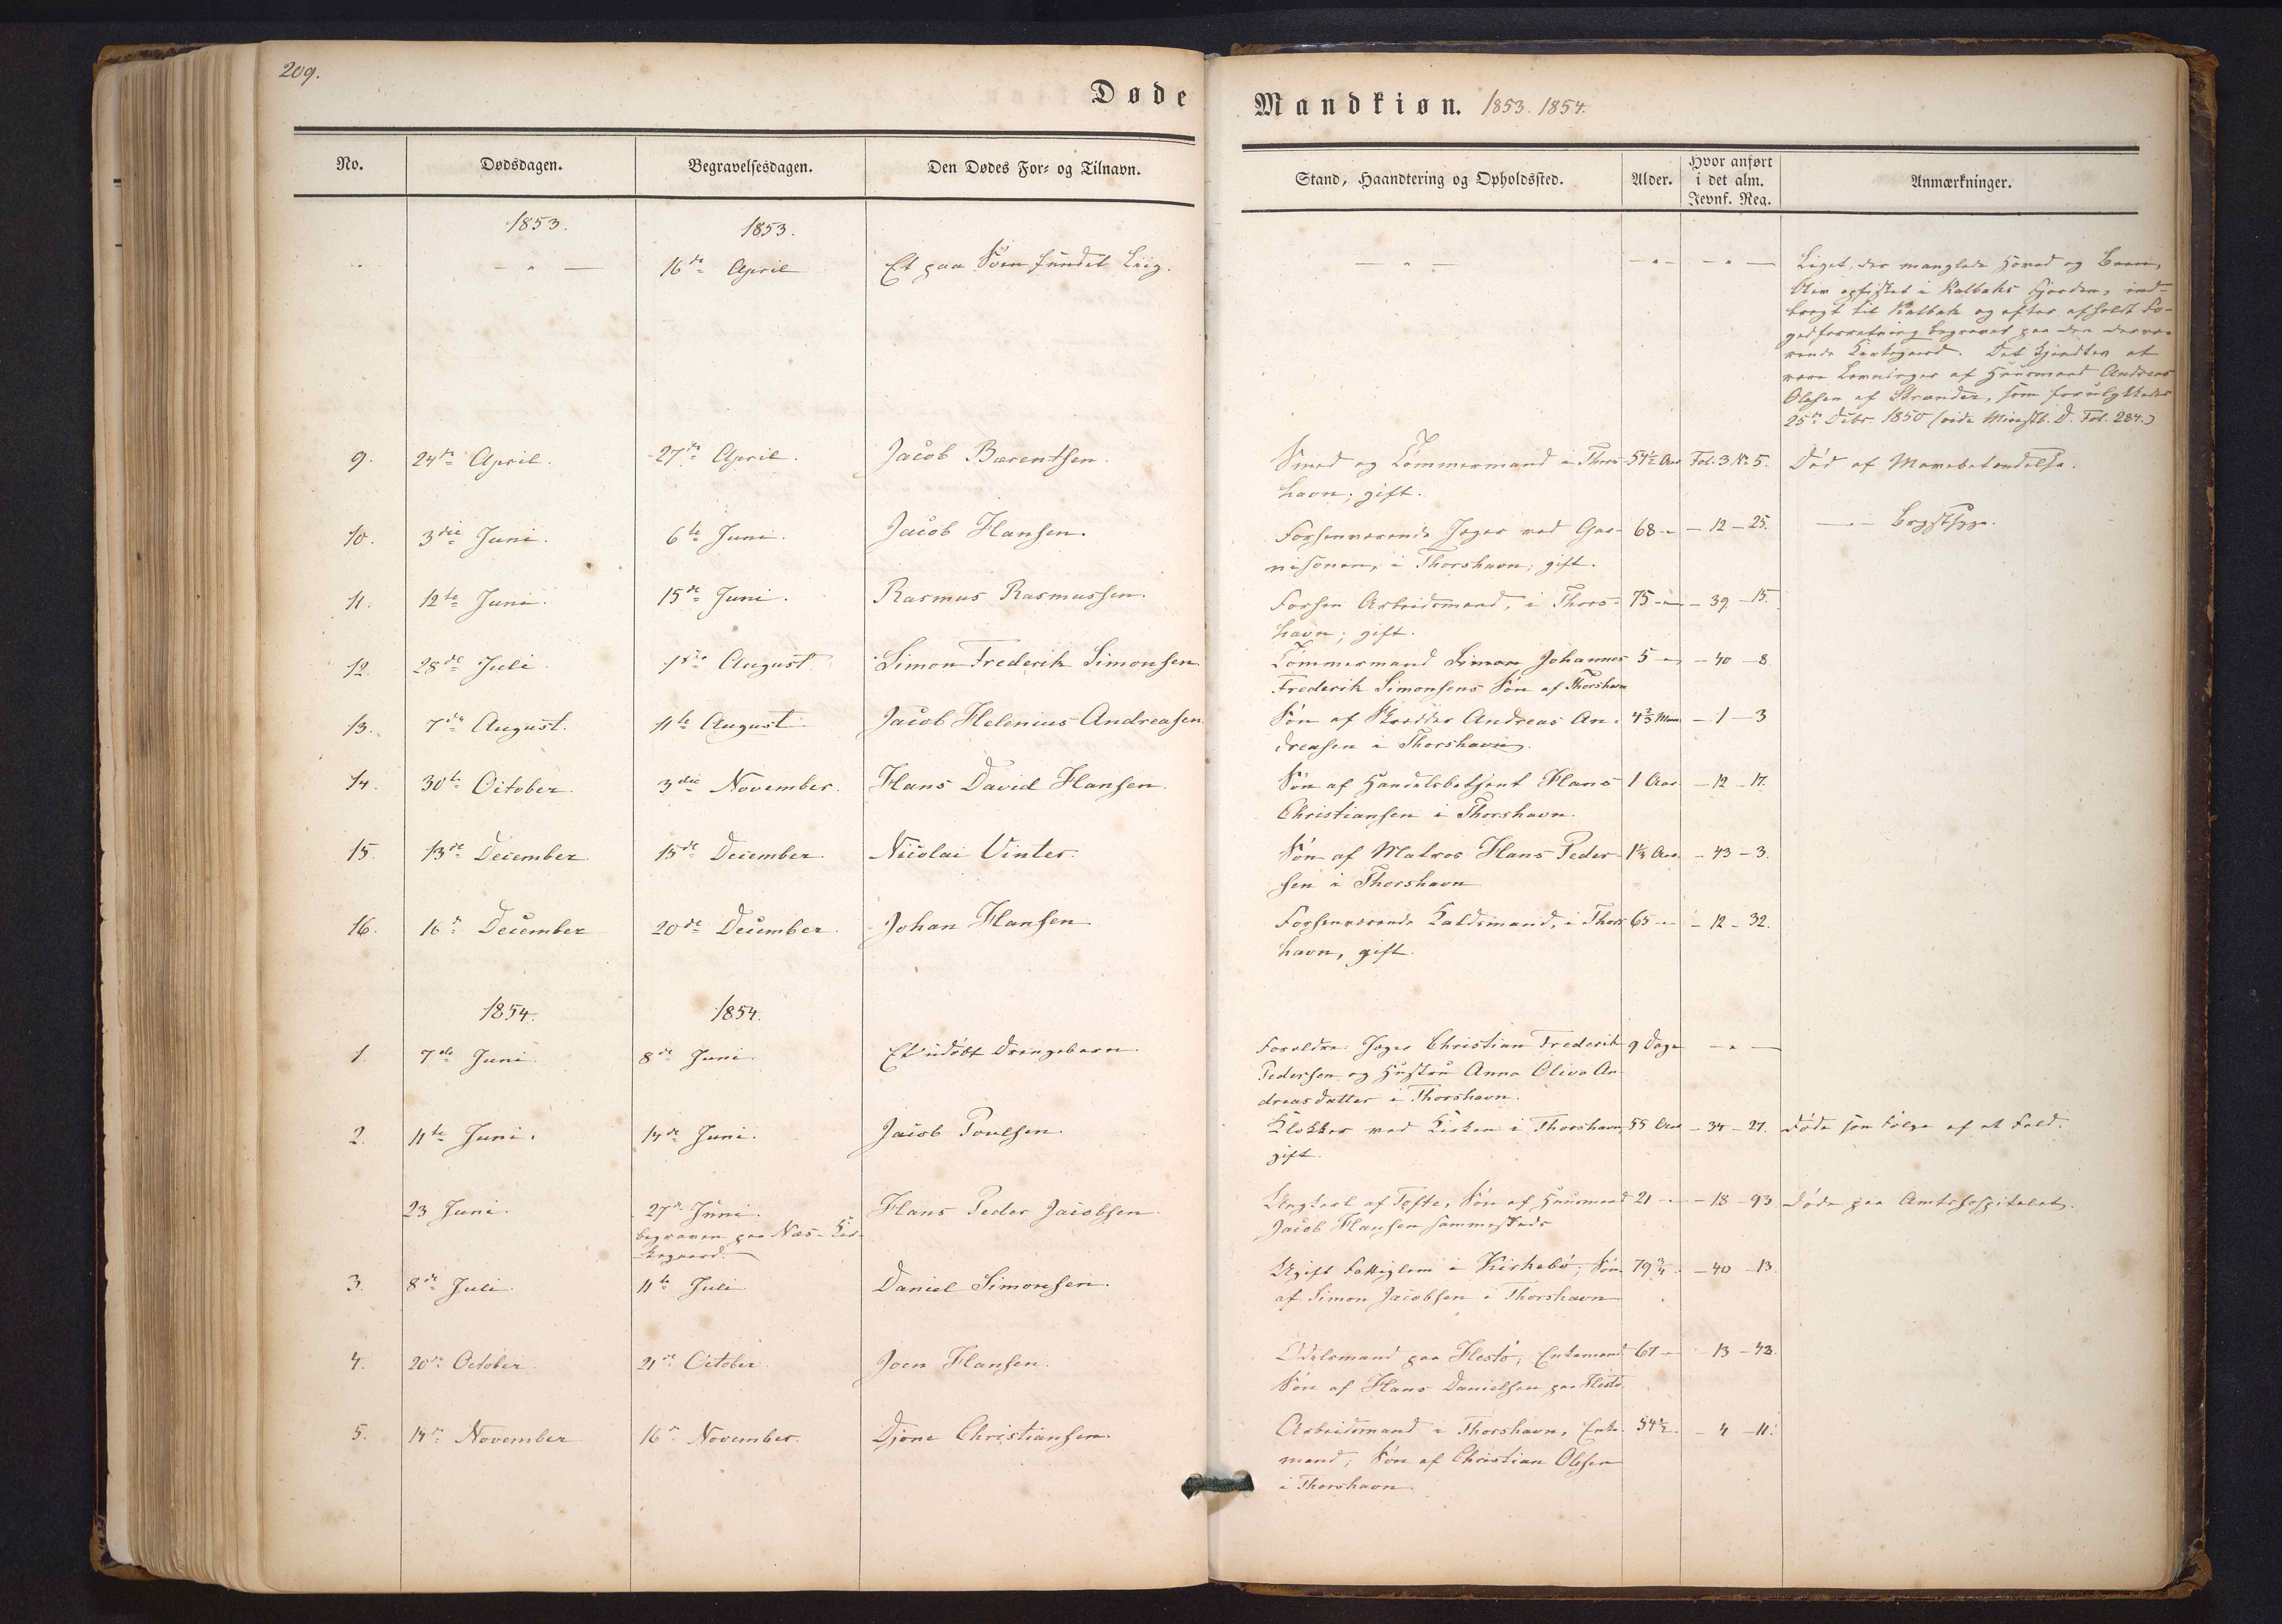 209.
Døde
Mandkiøn. 1853. 1854.
No. Dødsdagen. Begravelsesdagen. Den Dødes For- og Tilnavn. Stand, Haandtering og Opholdssted. Alder. Hvor anført i det alm. Jevnf. Reg. Anmærkninger.
1853. 1853.
— " — 16de April Et paa Søen fundet Liig. — " — — " — — " — Liget, der manglede Hoved og Been,
blev opfisket i Kalbaks Fjorden, ind-
bragt til Kalbak og efter afholdt Fo-
gedforretning begravet paa den dervæ-
rende Kirkegaard. Det kjendtes at
være Levninger af Huusmand Andreas
Olesen af Strænder, som forulykkedes
25de Debr. 1850 (vide Ministb. D. Fol. 284.)
9. 24de April. 27de April. Jacob Bærentsen. Smed og Tømmermand i Thors- 54½ Aar Fol. 3 No 5. Død af Mavebetændelse.
havn; gift.
10. 3die Juni. 6te Juni. Jacob Hansen. Forhenværende Jæger ved Gar- 68 " — 12 — 25. — " — Brystsyge.
nisonen, i Thorshavn; gift.
11. 12te Juni. 15de Juni. Rasmus Rasmussen. Forhen Arbeidsmand, i Thors- 75 " — 39 — 15.
havn; gift.
12. 28de Juli. 1ste August. Simon Frederik Simonsen Tømmermand Simon Johannes 5 " — 40 — 8.
Frederik Simonsens Søn af Thorshavn
13. 7de August. 11te August. Jacob Helenius Andreasen. Søn af Skrædder Andreas An- 4⅔ Maan. — 1 — 3
dreasen i Thorshavn.
14. 30te October. 3die November. Hans David Hansen. Søn af Handelsbetjent Hans 1 Aar. — 12 — 17.
Christiansen i Thorshavn.
15. 13de December. 15de December. Nicolai Vinter. Søn af Matros Hans Peder- 1⅓ Aar. — 43 — 3.
sen i Thorshavn
16. 16de December 20de December. Johan Hansen Forhenværende Kaldsmand, i Thors- 65 " — 12 — 32.
havn, gift.
1854. 1854.
1. 7de Juni. 8de Juni. Et udøbt Drengebarn. Forældre: Jæger Christian Frederik 9 Dage — " —
Pedersen og Hustru Anna Olivia An-
dreasdatter i Thorshavn.
2. 11te Juni. 14de Juni. Jacob Poulsen. Klokker ved Kirken i Thorshavn, 55 Aar — 34 — 27. Døde som Følge af et Fald.
gift.
23 Juni. 27de Juni. Hans Peder Jacobsen. Ungkarl af Tofte, Søn af Huusmand 21 " — 18 — 93 Døde paa Amtshospitalet.
begraven paa Næs-Kir-
kegaard. Jacob Hansen sammesteds
3. 8de Juli. 11te Juli. Daniel Simonsen. Ugift Fattiglem i Kirkebø; Søn 79¾ — 40 — 13.
af Simon Jacobsen i Thorshavn
4. 20de October. 21de October. Joen Hansen. Odelsmand paa Hestø; Enkemand 67 " — 13 — 43.
Søn af Hans Danielsen paa Hestø.
5. 14de November 16de November. Djone Christiansen. Arbeidsmand i Thorshavn, Enke- 54½. — 4 — 11.
mand; Søn af Christian Olesen
i Thorshavn.